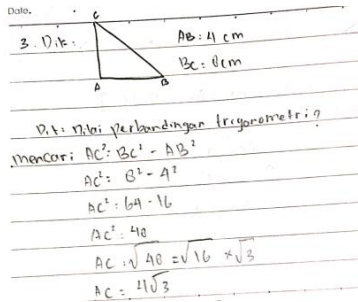 Date.
C
3. Dik: AB: 4 cm
BC: 8cm
A B
Dit: Nilai perbandingan trigonometri?
mencari AC²: BC² - AB²
AC²: 8² - 4²
AC²: 64 - 16
AC²: 48
AC: √48 = √16 × √3
AC = 4√3